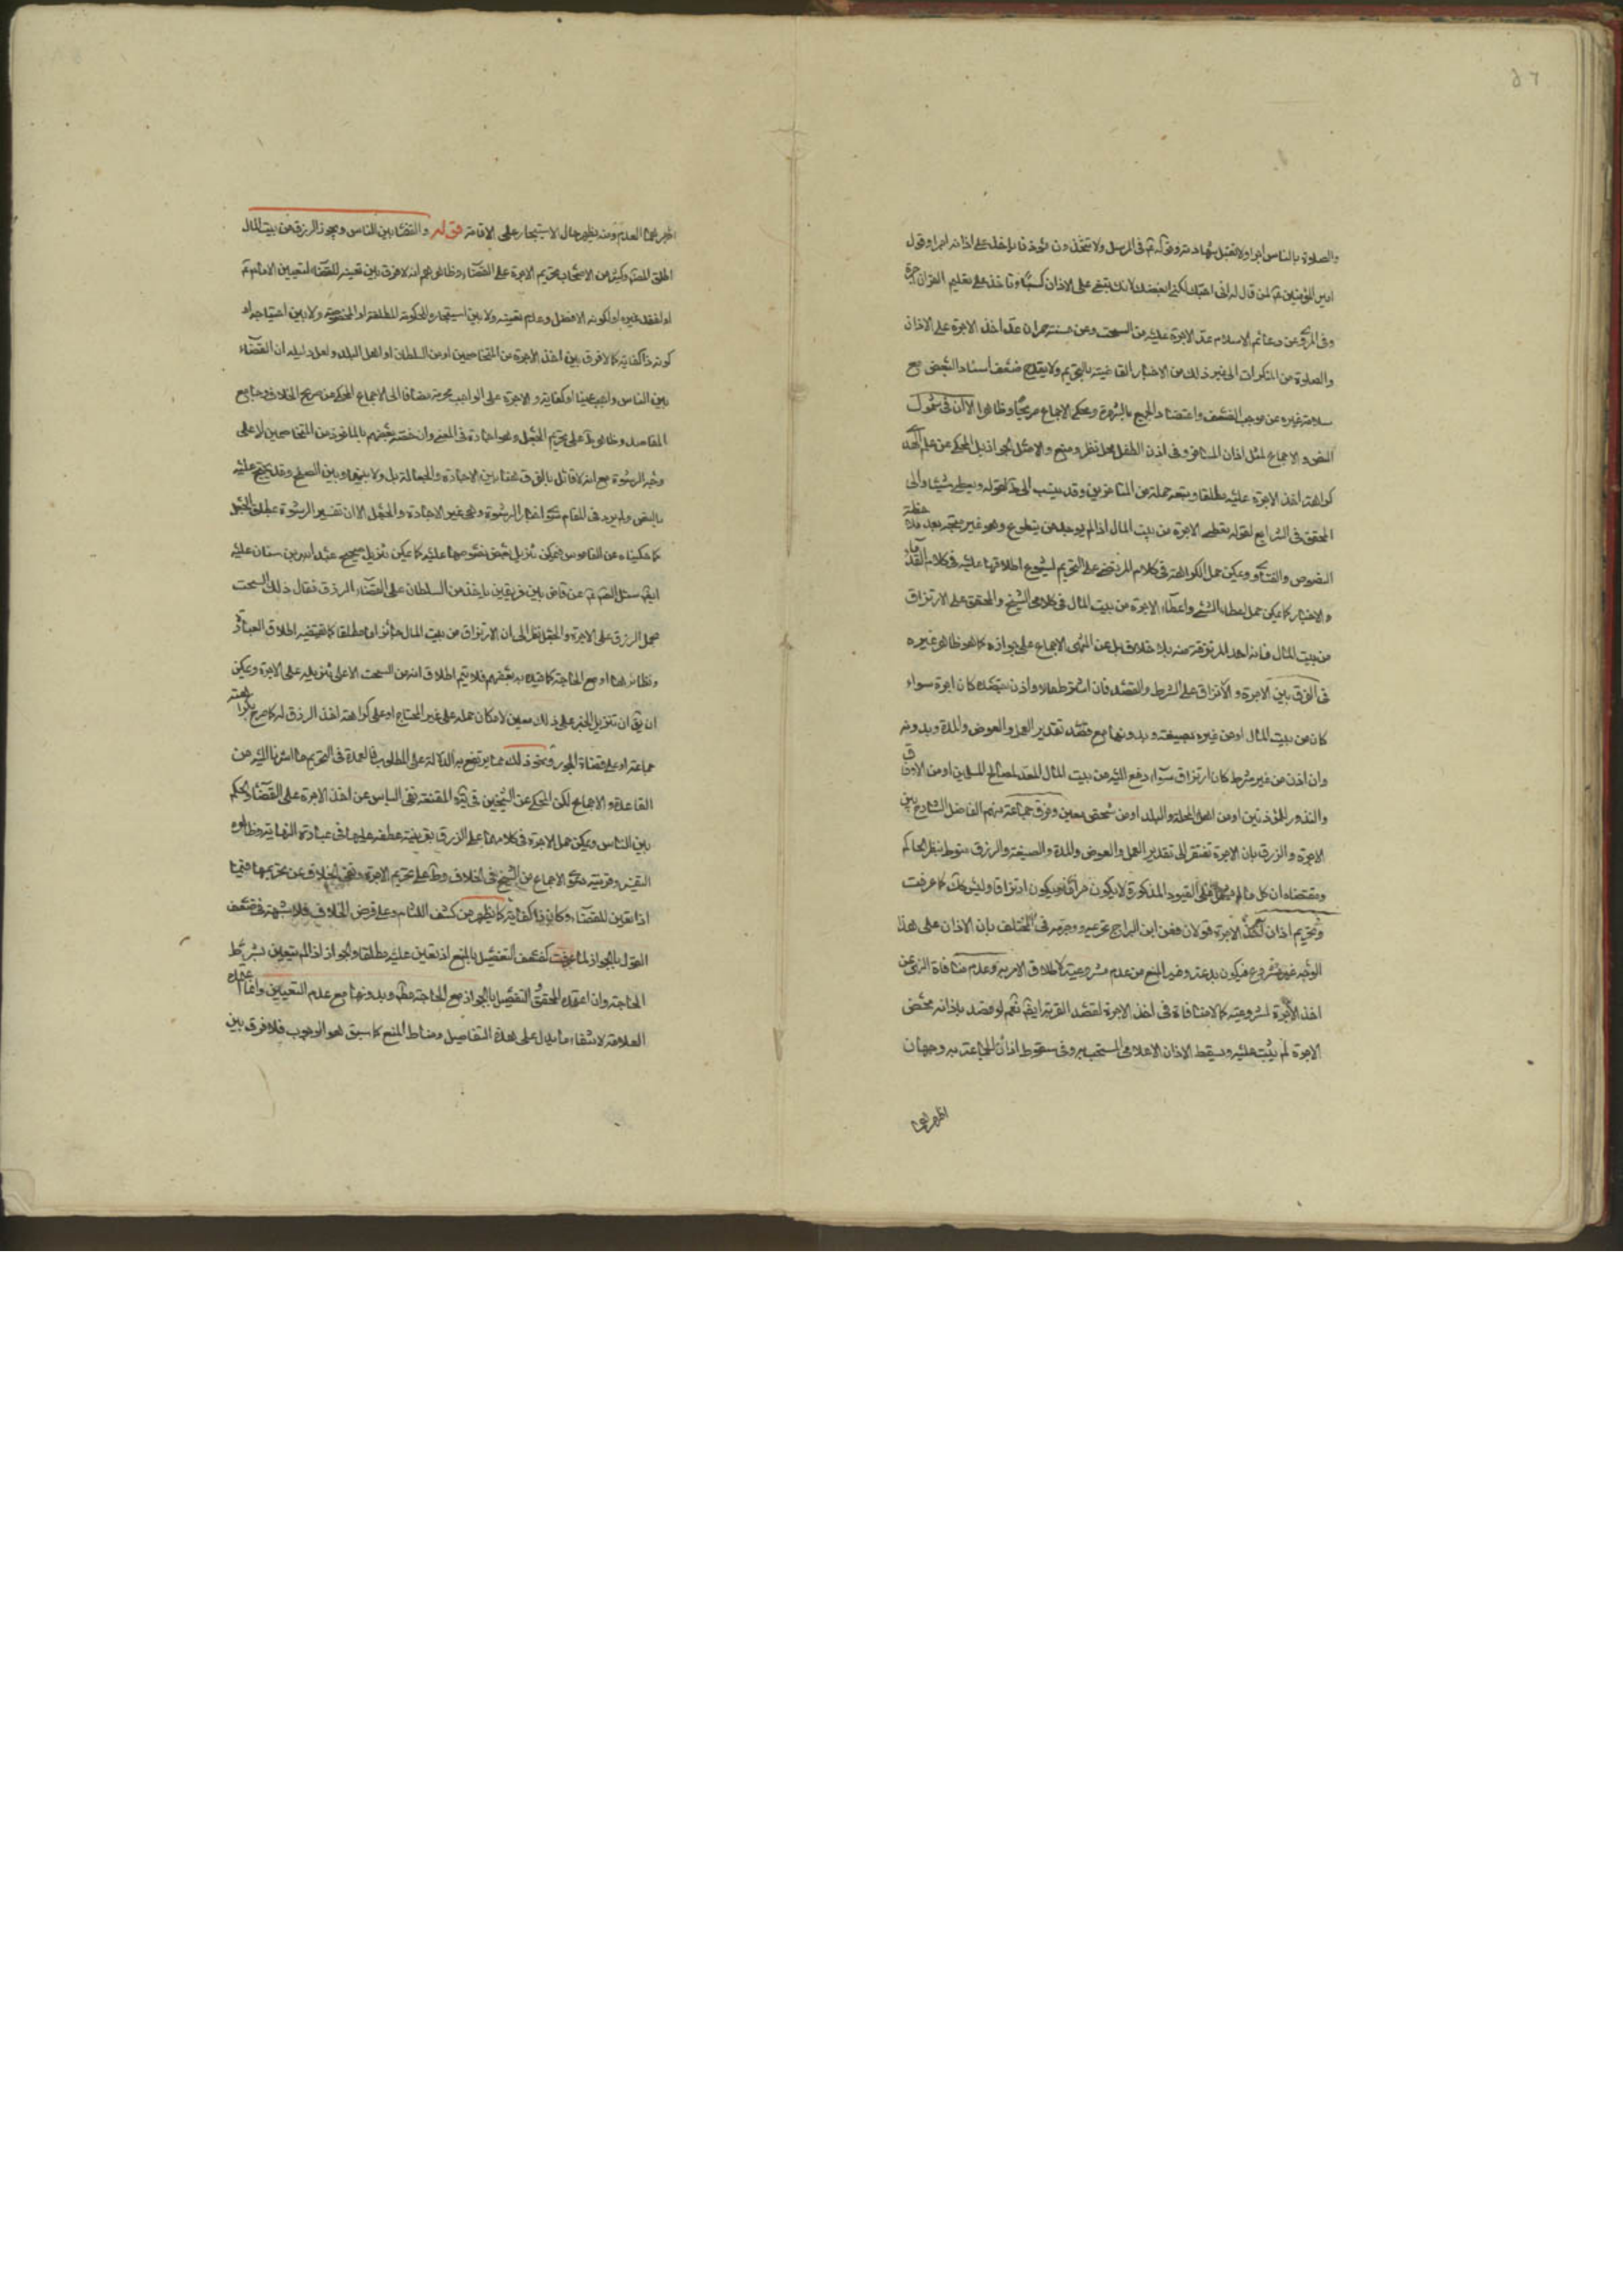 والصلوة بالناس اجرا ولا تقبل شهادته وقوله ع في المرسل ولا تتخذن مؤذنا ياخذ على اذانه اجرا وقول
امير المؤمنين ع لمن قال له اني احبك لكني ابغضك لانك تبغي على الاذان كسبا وتاخذ على تعليم القران اجرة
وفي المروي عن دعائم الاسلام عد الاجرة عليه من السحت وعن حسنة حمران عد اخذ الاجرة على الاذان
والصلوة من المنكرات الى غير ذلك من الاخبار القاضية بالتحريم ولا يقدح ضعف اسناد البعض مع
سلامة غيره عن موجب الضعف واعتضاد الجميع بالشهرة ومحكي الاجماع صريحا وظاهرا الا ان في شمول
النص والاجماع لمثل اذان المسافر وفي اذن الطفل محل نظر ومنع والامثل الجواز بل المحكي عن علم الهدى
كراهة اخذ الاجرة عليه مطلقا وتبعه جملة من المتاخرين وقد ينسب الى لقوله ويعطى شيئا والى
المحقق في الشرايع لقوله تعطى الاجرة من بيت المال اذا لم يوجد من يتطوع وهو غير متجه بعد ملاحظة
النصوص والفتاوى ويمكن حمل الكراهة في كلام المرتضى على التحريم لشيوع اطلاقها عليه في كلام القدماء
والاخبار كما يمكن حمل اعطاء الشئ واعطاء الاجرة من بيت المال في كلامي الشيخ والمحقق على الارتزاق
من بيت المال فانه احد المرتزقة منه بلا خلاف بل عن المنتهى الاجماع على جوازه كما هو ظاهر غيره
في الفرق بين الاجرة والارتزاق على الشرط والقصد فان اشترط مالا واذن بقصده كان اجرة سواء
كان من بيت المال او من غيره بصيغة وبدونها مع قصد تقدير العمل والعوض والمدة وبدونه
وان اذن من غير شرط كان ارتزاق سواء دفع اليه من بيت المال المعد لمصالح المسلمين او من الاوقاف
والنذور للمؤذنين او من اهل المحلة والبلد او من شخص معين وفرق جماعة منهم الفاضل الشارح بين
الاجرة والرزق بان الاجرة تفتقر الى تقدير العمل والعوض والمدة والصيغة والرزق منوط بنظر الحاكم
ومقتضاه ان كل ما لم يشتمل على القيود المذكورة لا يكون حراما ويكون ارتزاقا وليس كك كما عرفت
وتحريم اذان اخذ الاجرة قولان فعن ابن البراج تحريمه ووجهه في المختلف بان الاذان على هذا
الوجه غير مشروع فيكون بدعة وفيه المنع من عدم مشروعيته لاطلاق الامر به وعدم منافاة النهي عن
اخذ الاجرة لمشروعيته كما لا منافاة في اخذ الاجرة لقصد القربة ايض نعم لو قصد باذانه محض
الاجرة لم يثب عليه ويسقط الاذان الاعلامي المستحب به وفي سقوط اذان الجماعة به وجهان
اظهرهما
اظهرهما العدم ومنه يظهر حال الاستيجار على الاقامة قوله والقضاء بين الناس ويجوز الرزق من بيت المال
اطلق المص وكثير من الاصحاب تحريم الاجرة على القضاء وظاهرهم انه لا فرق بين تعينه للقضاء لتعيين الامام ع
او لفقد غيره او لكونه الافضل وعدم تعينه ولا بين استيجاره للحكومة المطلقة او المخصوصة ولا بين احتياجه او
كونه ذا كفاية كما لا فرق بين اخذ الاجرة من المتخاصمين او من السلطان او اهل البلد ولعل دليله ان القضاء
بين الناس واجب عينا او كفاية والاجرة على الواجب محرمة مضافا الى الاجماع المحكي عن صريح الخلاف وجامع
المقاصد وظاهر يدل على تحريم الجعل وهو اجارة في المعنى وان خصه بعضهم بالماخوذ من المتخاصمين لا على
وجه الرشوة مع انه لا قائل بالفرق هنا بين الاجارة والجعالة بل ولا بينهما وبين الصلح وقد يحتج عليه
بالنص ولم يرد في المقام سوى اخبار الرشوة وهي غير الاجارة والجعل الا ان تفسير الرشوة بمطلق الجعل
كما حكيناه عن القاموس فيمكن تنزيل بعض نصوصها عليه كما يمكن تنزيل صحيح عبد الله بن سنان عليه
ايض سئل الص ع عن قاض بين فريقين ياخذ من السلطان على القضاء الرزق فقال ذلك السحت
بحمل الرزق على الاجرة والجعل نظرا الى ان الارتزاق من بيت المال جائز اما مطلقا كما يقتضيه اطلاق العبارة
ونظائرها او مع الحاجة كما قيده به بعضهم فلا يتم اطلاق انه من السحت الا على تنزيله على الاجرة ويمكن
ان يق ان تنزيل الخبر على ذلك معين لامكان حمله على غير المحتاج او على كراهة اخذ الرزق له كما صرح بكراهته
جماعة او على قضاة الجور ونحو ذلك مما يرتفع به الدلالة على المطلوب فالعمدة في التحريم ما اشرنا اليه من
القاعدة والاجماع لكن المحكي عن الشيخين في المقنعة نفي الباس عن اخذ الاجرة على القضاء والحكم
بين الناس ويمكن حمل الاجرة في كلامهما على الرزق بقرينة عطفه عليها في عبارة النهاية وظاهره
التفسير وقرينته دعوى الاجماع من الشيخ في الخلاف وط على تحريم الاجرة ونفي الخلاف عن تحريمها فيما
اذا تعين للقضاء وكان ذا كفاية كما يظهر من كشف اللثام وعلى فرض الخلاف فلا شبهة في ضعف
القول بالجواز لما عرفت كضعف التفصيل بالمنع اذ تعين عليه مطلقا والجواز اذا لم يتعين بشرط
الحاجة وان اعتمده المحقق والتفصيل بالجواز مع الحاجة مط وبدونها مع عدم التعيين وان اعتمده
العلامة لانتفاء ما يدل على هذه التفاصيل ومناط المنع كما سبق هو الوجوب فلا فرق بين